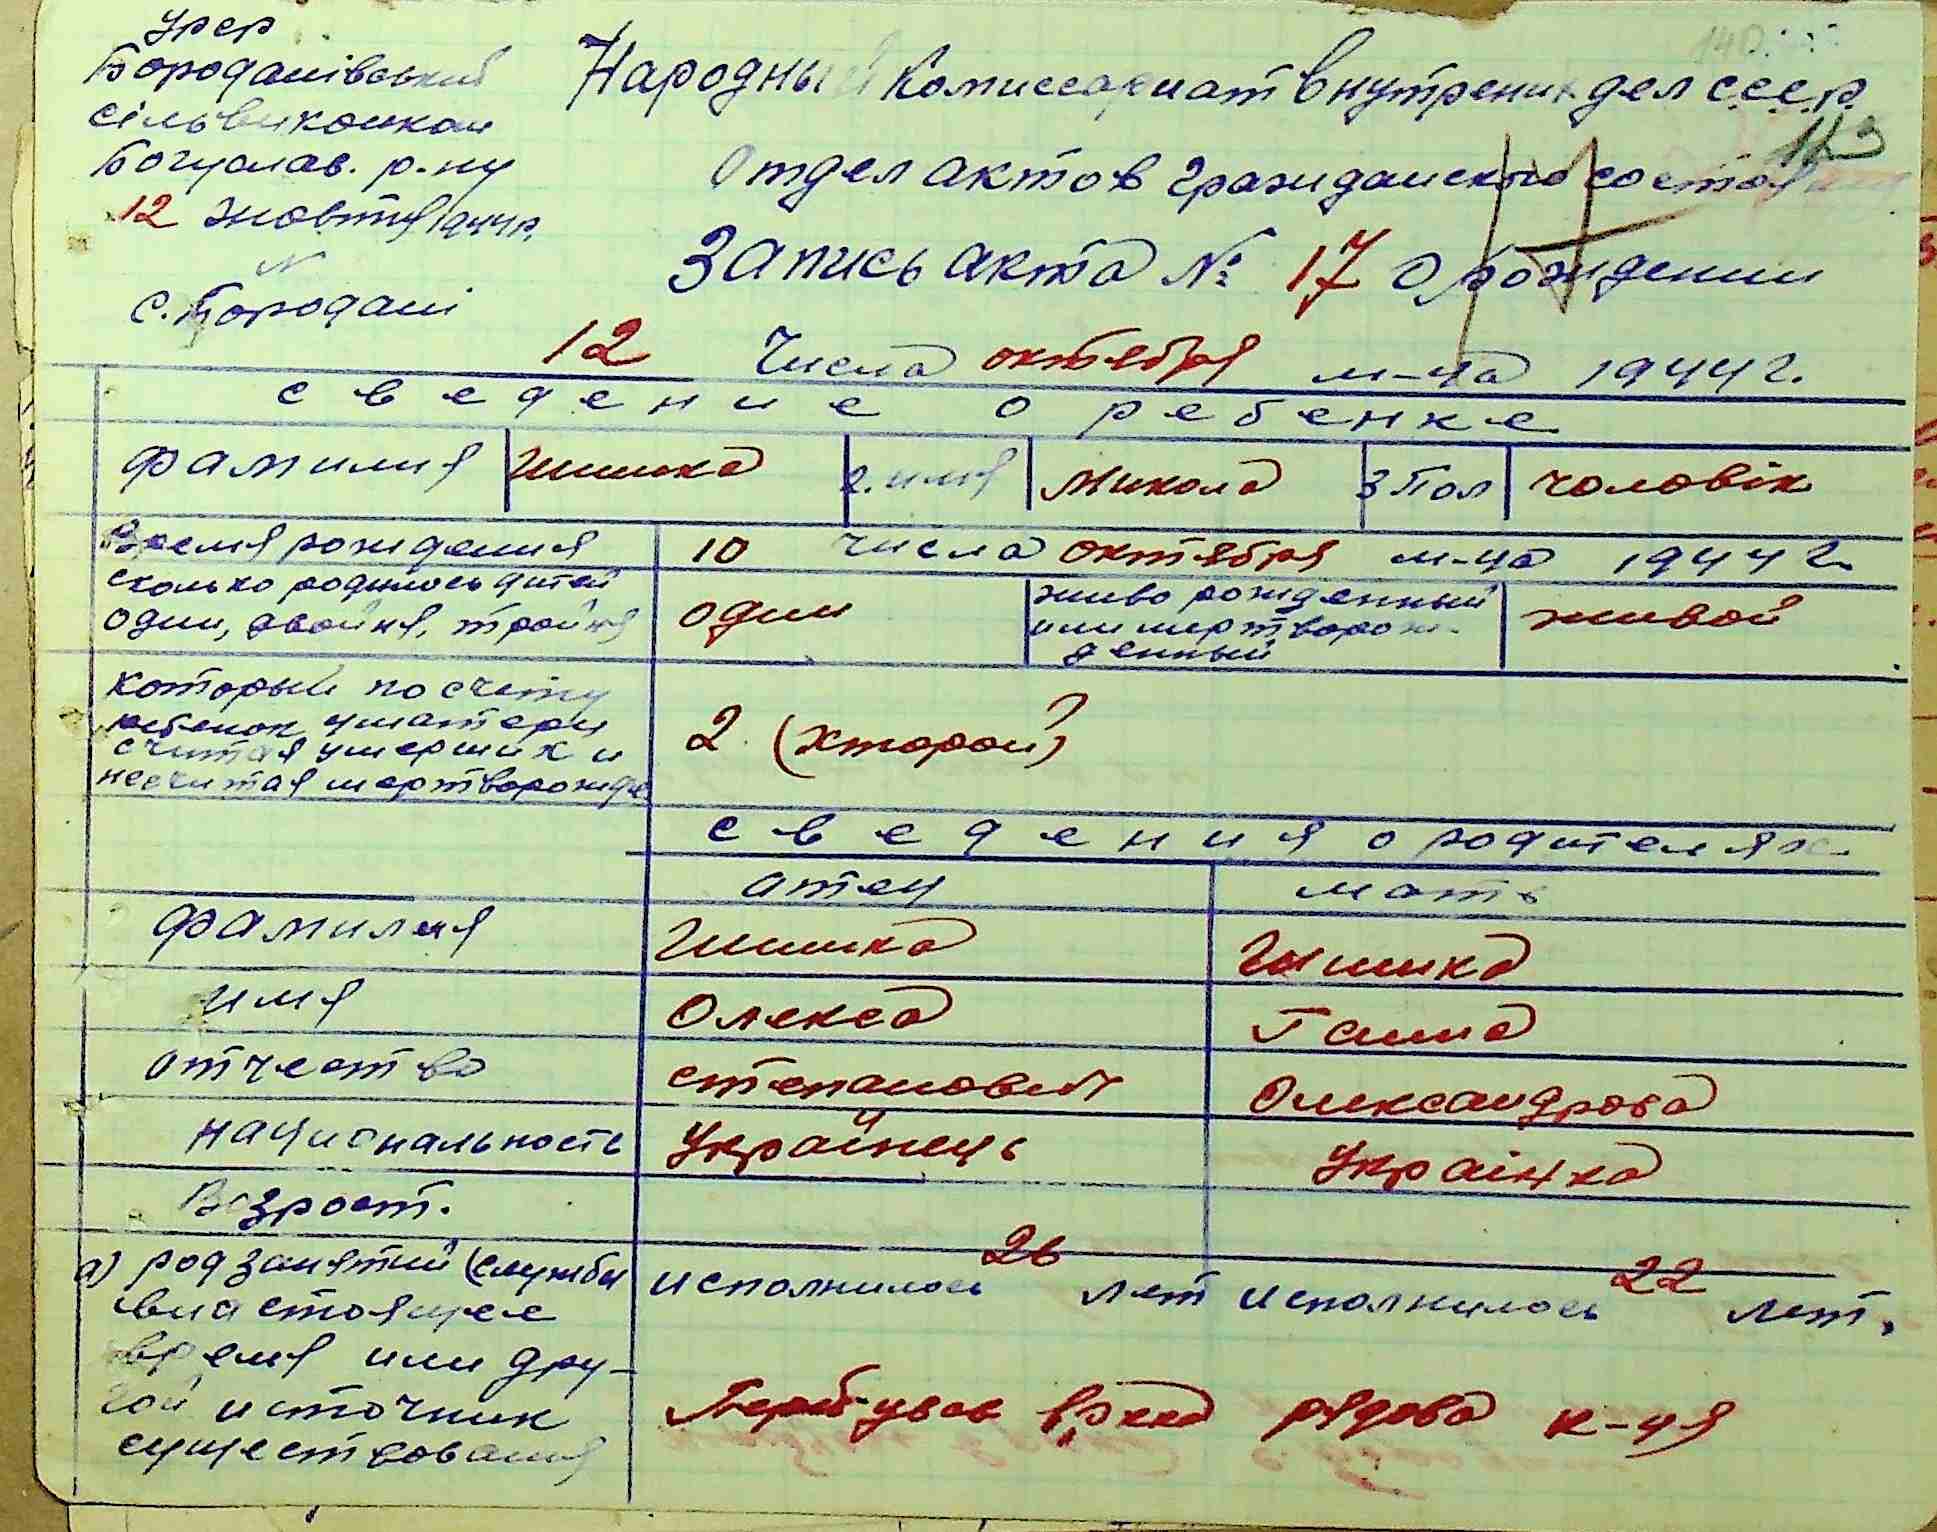 УРСР
Бородамівський
сільвиконком
Богуслав. р-ну
12 жовтня 1944 р.
N
с. Бородані
Народный Комиссариат Внутренних дел С.С.С.Р.
113
Отдел актов гражданского состояния
Запись акта № 17 О рождении
12 числа октября м-ца 1944 г.
сведение о ребенке
фамилия Шишка 2. имя Микола 3 Пол чоловік
Время рождения 10 числа октября м-ца 1944 г.
сколько родилось дитей один, двойня, тройня
один
живо рожденный или мертворож-денный
живой
который по счету
ребенок у матери
считая умерших и
несчитая мертворожде
2 (хторой)
сведения о родителях
отец мать
фамилия Шишка Шишка
имя Олекса Ганна
отчество Степанович Олександрова
национальность Українець Українка
Возраст.
исполнилось 26 лет исполнилось 22 лет.
а) род занятий (службы
в настоящее
время или дру-
гой источник
существования
Перебував в РККА рядова к-ця